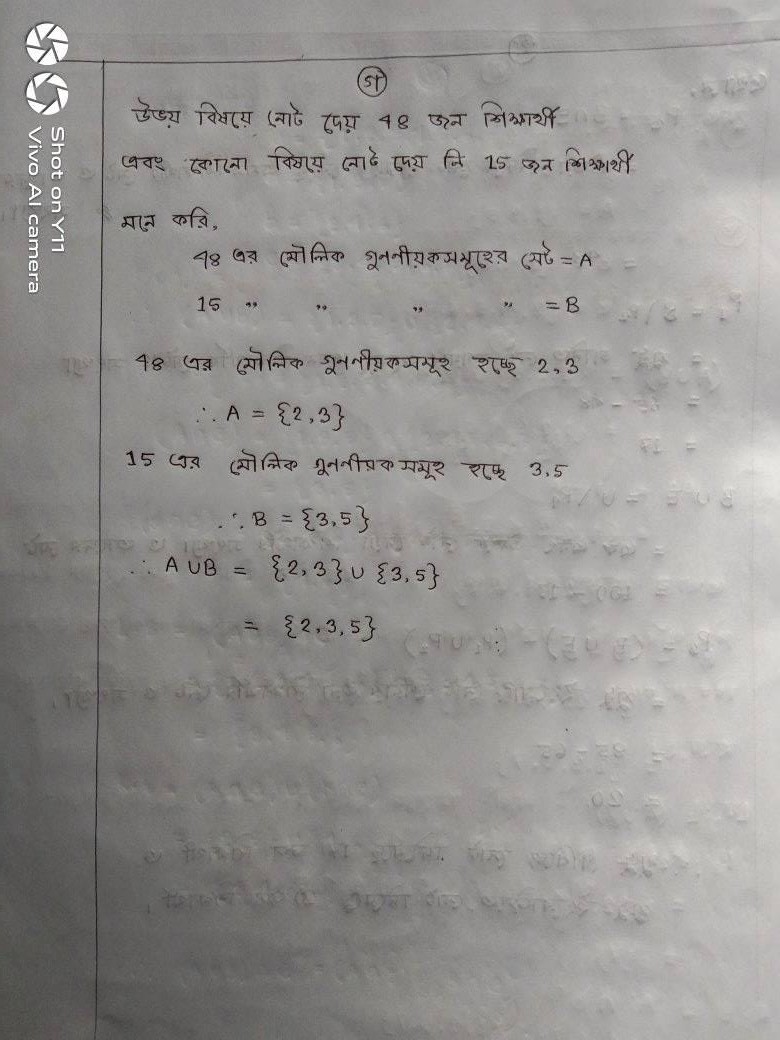 গ
উভয় বিষয়ে নোট দেয় 48 জন শিক্ষার্থী
এবং কোনো বিষয়ে নোট দেয় নি 15 জন শিক্ষার্থী
মনে করি,
48 এর মৌলিক গুননীয়কসমূহের সেট = A
15 " " " " = B
48 এর মৌলিক গুননীয়কসমূহ হচ্ছে 2,3
∴ A = {2,3}
15 এর মৌলিক গুননীয়কসমূহ হচ্ছে 3,5
∴ B = {3,5}
∴ A∪B = {2,3} ∪ {3,5}
= {2,3,5}
Shot on Y11
Vivo AI camera